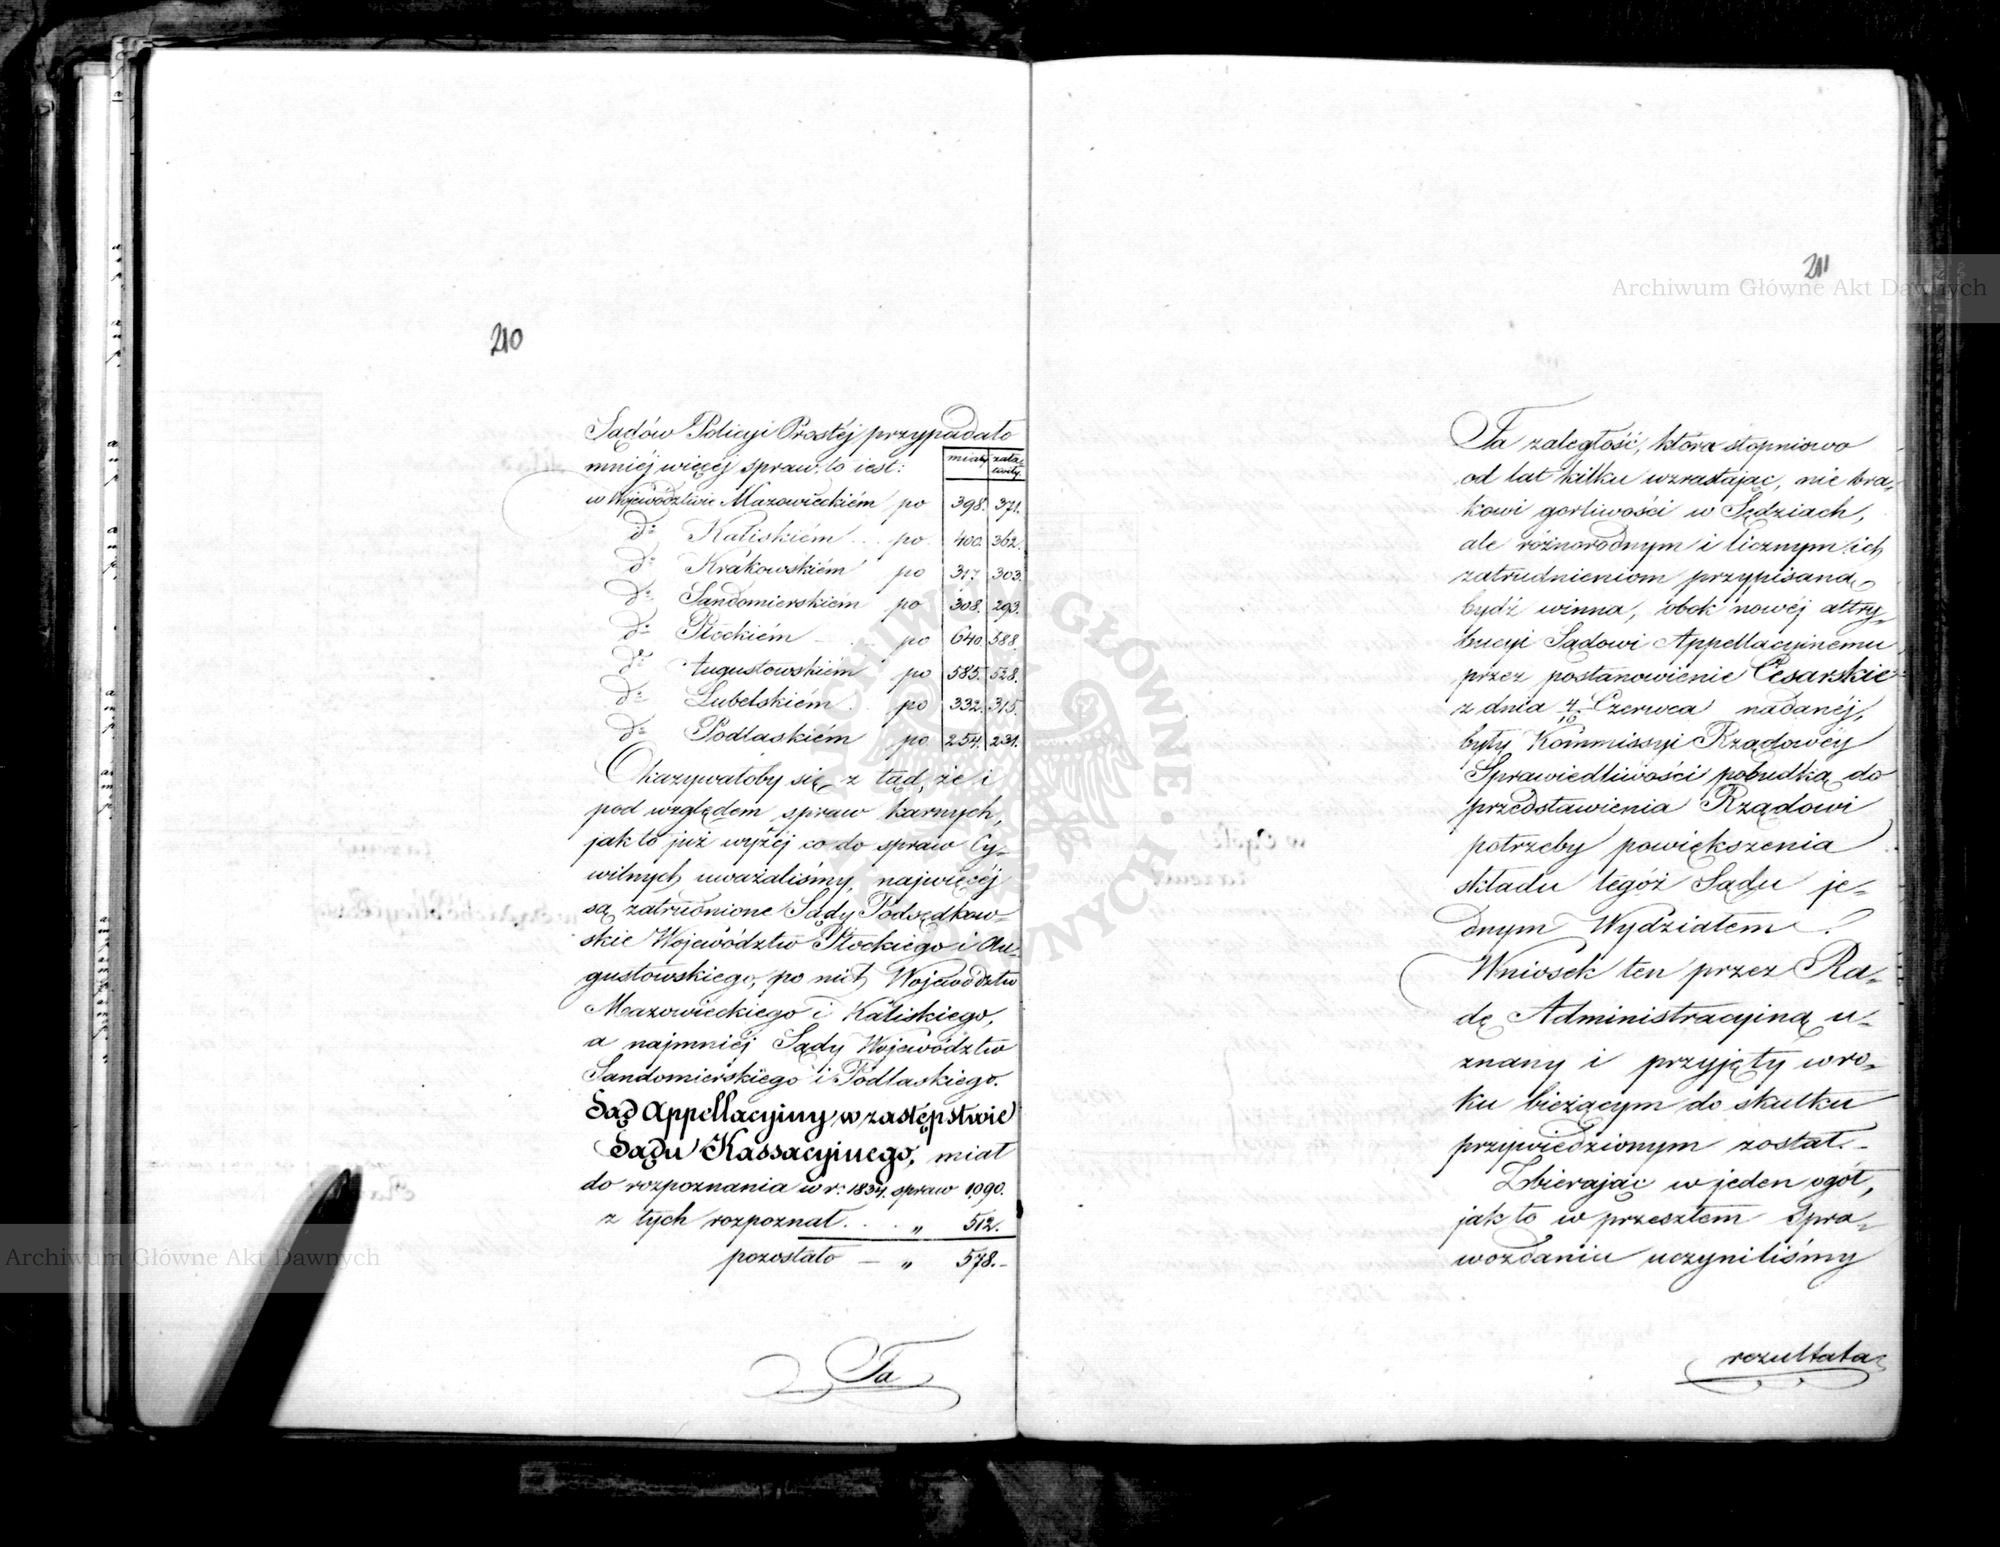 210
Sądów Policyi Prostéj przypadało
mniéj więcéj spraw, to iest: miały załatwiły
w Województwie Mazowieckiém po 398. 371.
do Kaliskiém po 400. 362.
do Krakowskiém po 317. 303.
do Sandomierskiém po 308. 293.
do Płockiém po 640. 588.
do Augustowskiém po 585. 528.
do Lubelskiém po 332. 315.
do Podlaskiém po 254. 231.
Okazywałoby się z tąd, że i
pod względem spraw karnych,
jak to już wyżéj co do spraw Cy-
wilnych uważaliśmy, najwięcéj
są zatrudnione Sądy Podsędkow-
skie Województw Płockiego i Au-
gustowskiego, po nich Województw
Mazowieckiego i Kaliskiego,
a najmniéj Sądy Województw
Sandomierskiego i Podlaskiego.
Sąd Appellacyjny w zastępstwie
Sądu Kassacyjnego, miał
do rozpoznania w r. 1834. spraw 1,090.
z tych rozpoznał . . . „ 512.
pozostało — „ 578.-
Ta
211
Ta zaległość, która stopniowo
od lat kilku wzrastając, nie bra-
kowi gorliwości w Sędziach,
ale różnorodnym i licznym ich
zatrudnieniom przypisaną
bydź winna, obok nowéj attry-
bucyi Sądowi Appellacyjnemu
przez postanowienie Cesarskie
z dnia 4/16 Czerwca nadanéj,
były Kommissyi Rządowéy
Sprawiedliwości pobudką do
przedstawienia Rządowi
potrzeby powiększenia
składu tegóż Sądu je-
dnym Wydziałem.
Wniosek ten przez Ra-
dę Administracyjną u-
znany i przyjęty w ro-
ku bieżącym do skutku
przywiedzionym został.-
Zbierając w jeden ogół,
jak to w przeszłem Spra-
wozdaniu uczyniliśmy
rezultata
Archiwum Główne Akt Dawnych
Archiwum Główne Akt Dawnych
ARCHIWUM GŁÓWNE AKT DAWNYCH